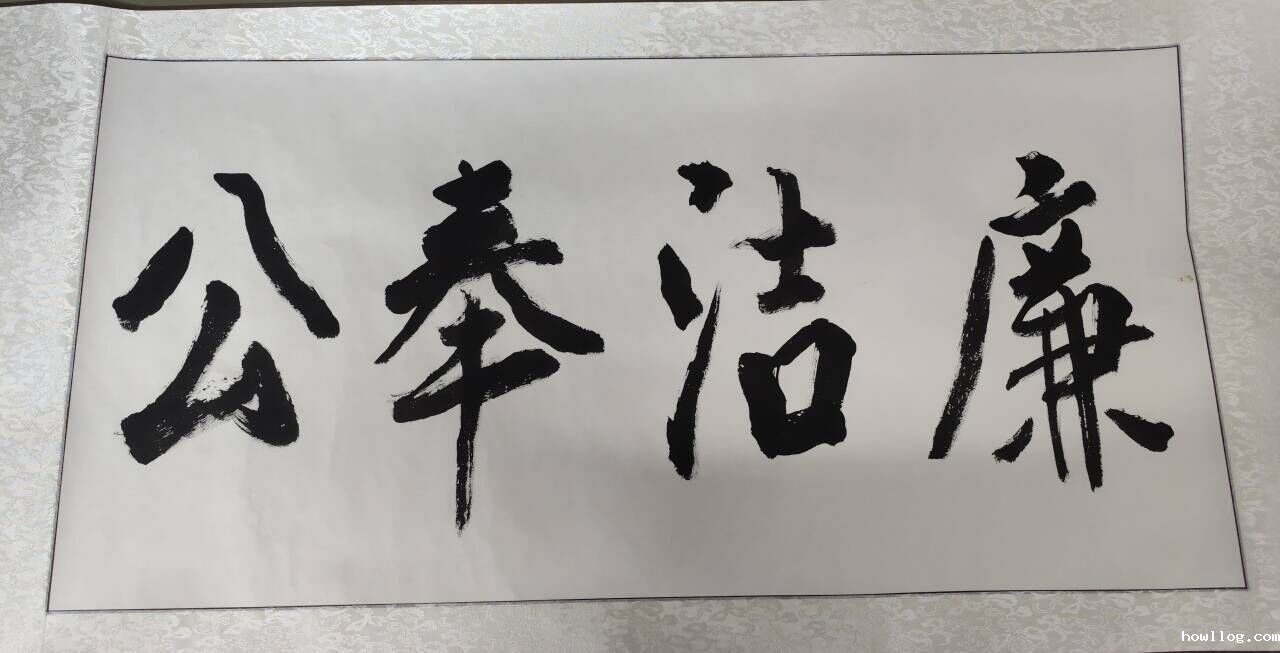 廉洁奉公
howllog.com